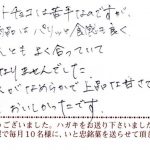 トチョコは苦手なのですが、
商品はパリッと食感も良く
とても よく合っていて
なりませんでした
がなめらかで上品な甘さで
おいしかったです。
ございました。ハガキをお送り下さいました
で毎月10名様に、いと忠銘菓を送らせて頂き